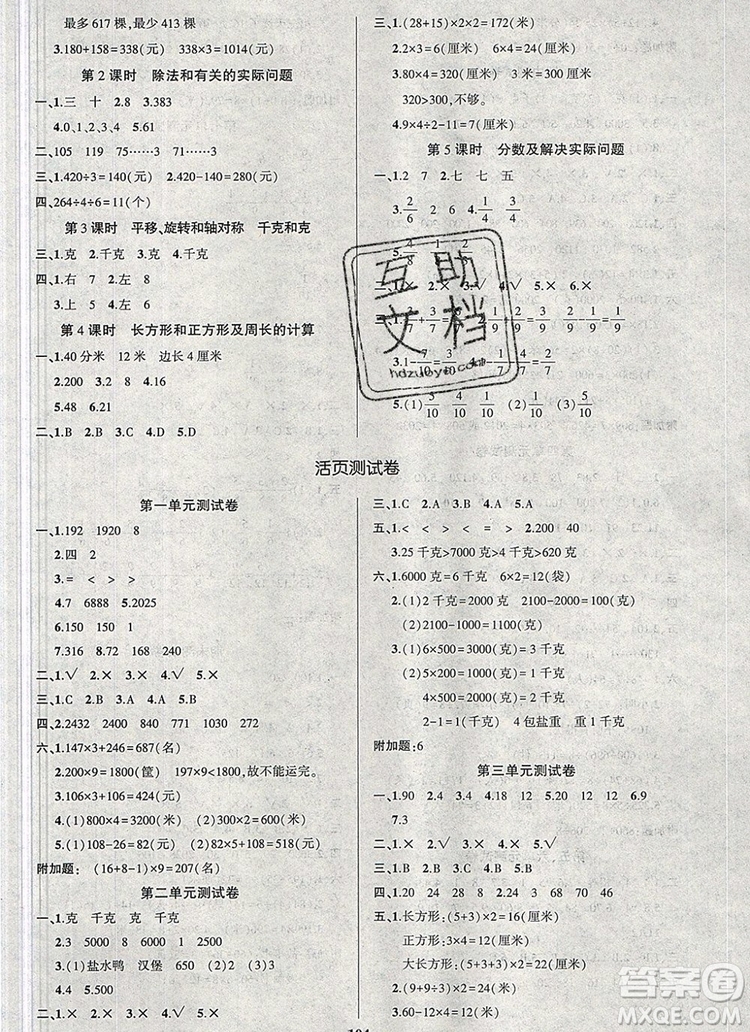 最多 617 棵,最少 413 棵
3.180+158=338(元) 338×3=1014(元)
第 2 课时 除法和有关的实际问题
一、1.三 十 2.8 3.383
4.0,1,2,3,4 5.61
二、105 119 75……3 62……4
三、1.420÷3=140(元) 2.420÷4=105(元)
四、264÷4÷6=11(个)
第 3 课时 平移、旋转和轴对称 千克和克
三、1.克 2.千克 3.克 4.千克
四、1.右 7 2.左 8
3.上 5 4.左 6
第 4 课时 长方形和正方形及周长的计算
一、1.40 分米 12 米 边长 4 厘米
2.200 3.8 9.2 4.16
5.48 6.21
二、1.B 2.B 3.A 4.D 5.D
三、1.(28+15)×2=86(厘米)
2.2×3=6(厘米) 6×4=24(厘米)
3.80×4=320(厘米) 3 米=300 厘米
320>300,不够。
4.9×4÷2-11=7(厘米)
第 5 课时 分数及解决实际问题
一、1.2 7 2.七 七 五
3.2/4 2 6 4.1/4 3/4
2.× 3.√ 4.√ 5.× 6.×
5.(1)5/10 9/10 (2)3/10 6/10
活页测试卷
第一单元测试卷
一、1.192 1920 8
2.四 2
3.= < > >
4.7 6888 5.2025
6.150 150 1
7.316 8.72 168 240
二、1.√ 2.× 3.× 4.√ 5.×
三、1.C 2.B 3.A 4.B 5.A
四、2.2432 2214 860 771 1030 272
六、1.147×3+246=687(名)
2.200×9=1800(筐) 197×9<1800,故不能运完。
3.106×3+106=424(元)
4.(1)800×4=3200(元) (2)300×4=1200(元)
5.(1)108-26=82(元) (2)82×3=246(元)
附加题: (16+8-1)×9=207(名)
第二单元测试卷
一、1.克 千克 克 千克
2.3 5000 8 6000 1 2500
3.(1)盐水鸭 汉堡 60 (2)3000 3
4.4 5.500
二、1.× 2.× 3.√ 4.× 5.×
三、1.C 2.A 3.B 4.A 5.A
五、1.< < > < = > 2.200 40
3.25 千克>7000 克>4 千克>620 克
六、1.6000 克=6 千克 6×2=12(袋)
2.(1)2 千克=2000 克 2100-2000=100(克)
(2)2100-1100=1000(克)
3.(1)6×500=3000(克)=3 千克
(2)5×200=1000(克)=1 千克
4×500=2000(克)=2 千克
2-1=1(千克) 4 包盐重 重 1 千克
附加题:6
第三单元测试卷
一、1.90 2.4 3.4 4.18 12 5.20 12 12 6.9
7.3
二、1.× 2.√ 3.× 4.× 5.√
三、1.B 2.C 3.B 4.C 5.B
四、1.20 24 28 8 2.10 78 70 46
五、1.长方形: (5+3)×2=16(厘米)
正方形:3×4=12(厘米)
大长方形: (5+3+3)×2=22(厘米)
2.(9+3)×2=24(厘米)
3.60-12×4=12(厘米)
互助
文档
hdzuoye.com
答案圈
MXQE.COM